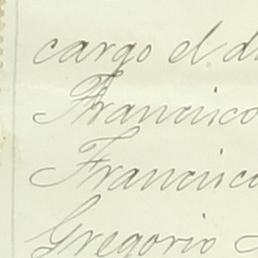 cargo el d
Francisco
Francisco
Gregorio